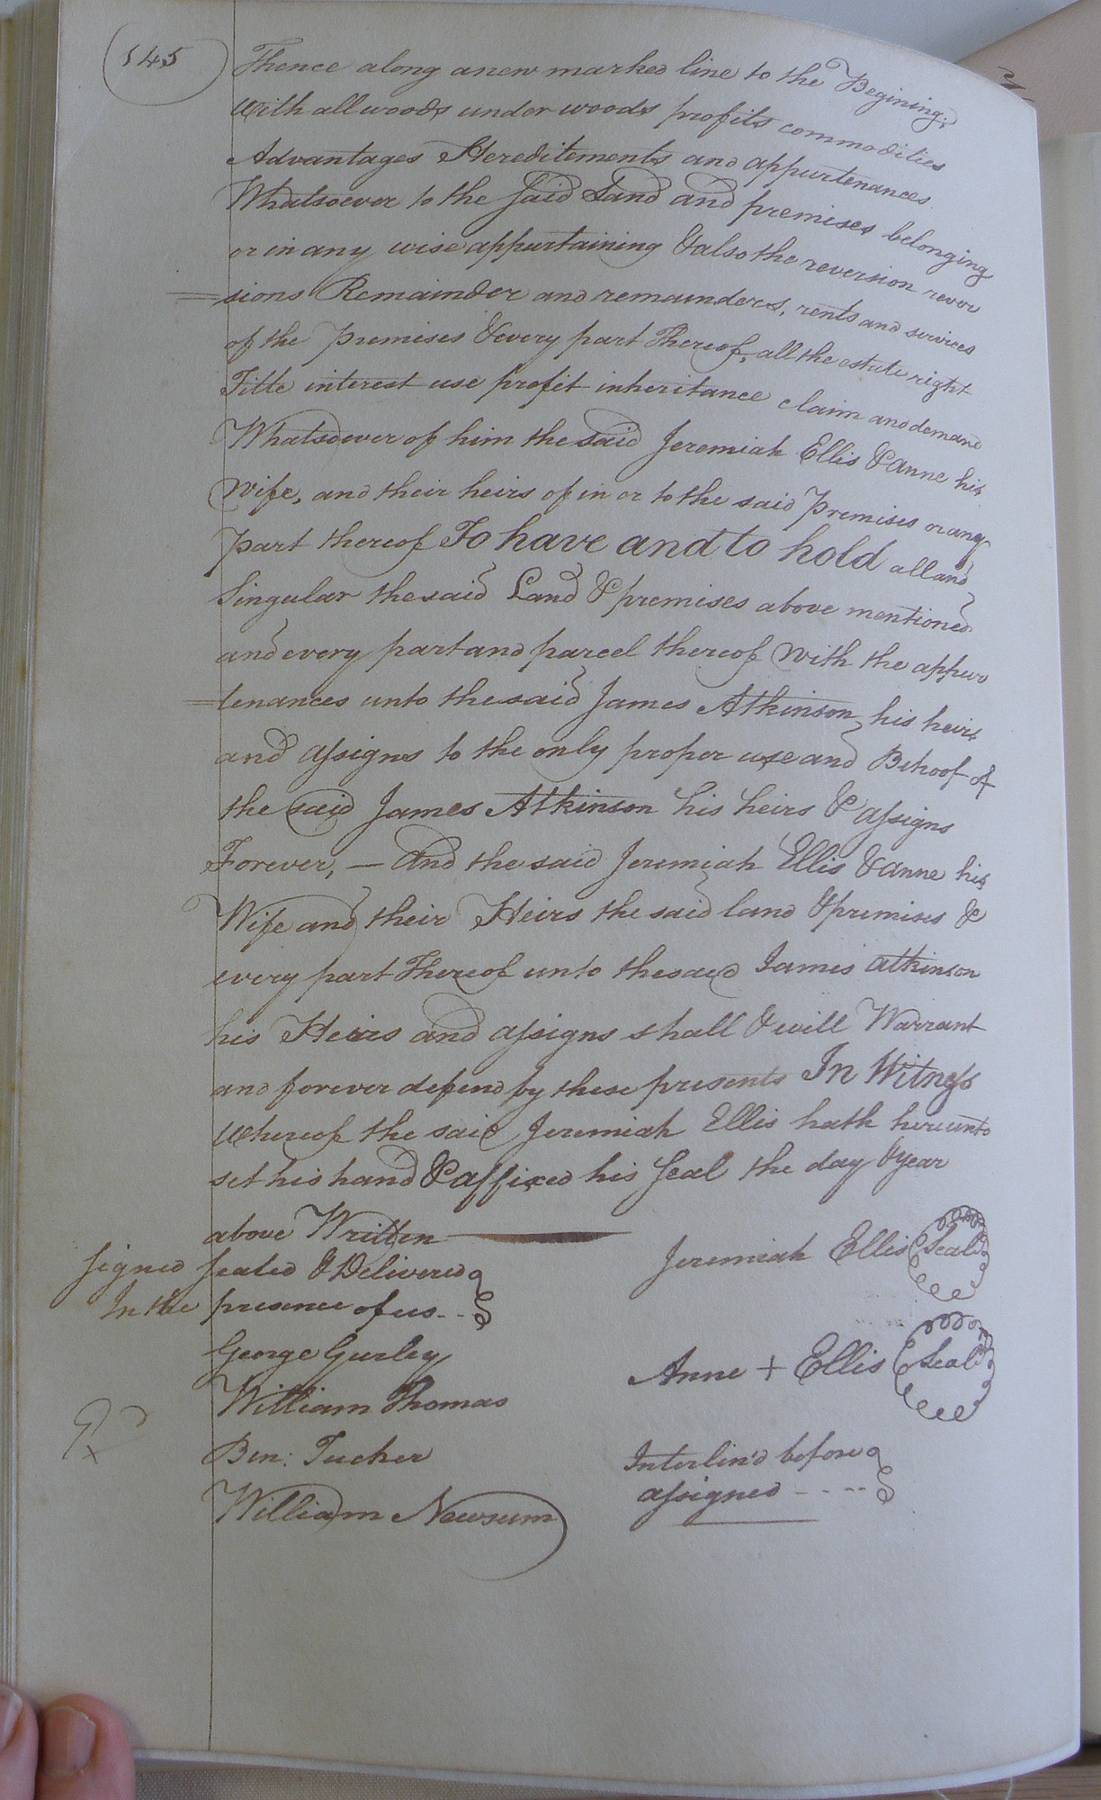 545
Thence along anew marked line to the Begining;
With all woods under woods profits commodities
Advantages Hereditements and appurtenances
Whatsoever to the said Land and premises belonging
or in any wise appurtaining & also the reversion rever
=sions Remainder and remainders, rents and services
of the Premises & every part Thereof, all the estate right
Title interest use profit inheritance claim and demand
Whatsoever of him the said Jeremiah Ellis & Anne his
Wife, and their heirs of in or to the said Premises or any
Part thereof To have and to hold all and
Singular the said Land & premises above mentioned
and every part and parcel thereof With the appur
=tenances unto the said James Atkinson his heirs
and assigns to the only proper use and Behoof of
the said James Atkinson his heirs & assigns
Forever, — And the said Jeremiah Ellis & Anne his
Wife and their Heirs the said land & premises &
every part Thereof unto the said James Atkinson
his Heirs and assigns shall & will Warrant
and forever defend by these presents In Witness
Whereof the said Jeremiah Ellis hath hereunto
set his hand & affixed his Seal the day & year
above Written
Signed Sealed & Delivered
In the presence of us
George Gurley
William Thomas
Ben: Tucker
William Newsum
Jeremiah Ellis Seal
Anne + Ellis Seal
Interlin'd before
assigned